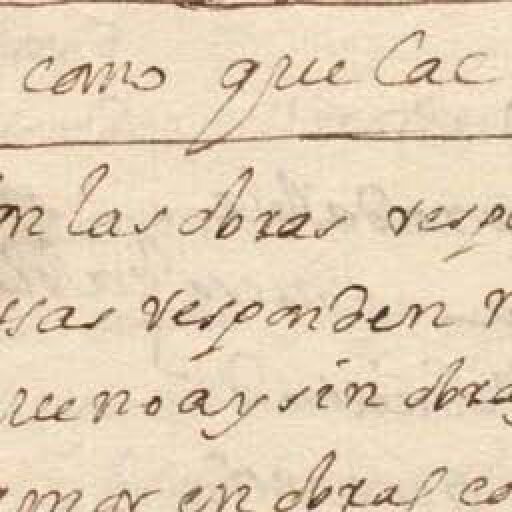 como que Cac
on las obras respo
ssas responden
rueno ay sin obra
amor en obras co